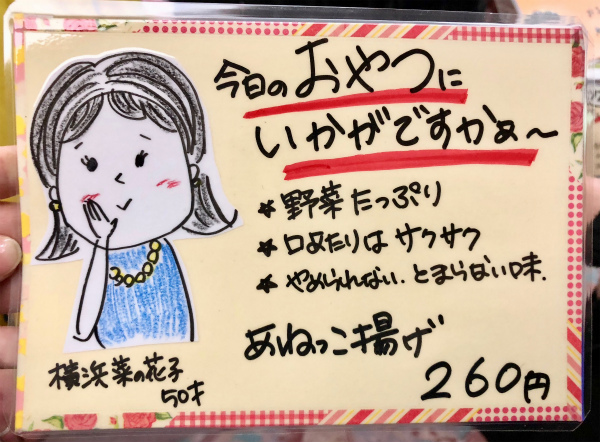 今日のおやつに
いかがですかぁ〜
★野菜たっぷり
★口あたりはサクサク
★やめられない.とまらない味.
あねっこ揚げ
260円
横浜菜の花子
50才